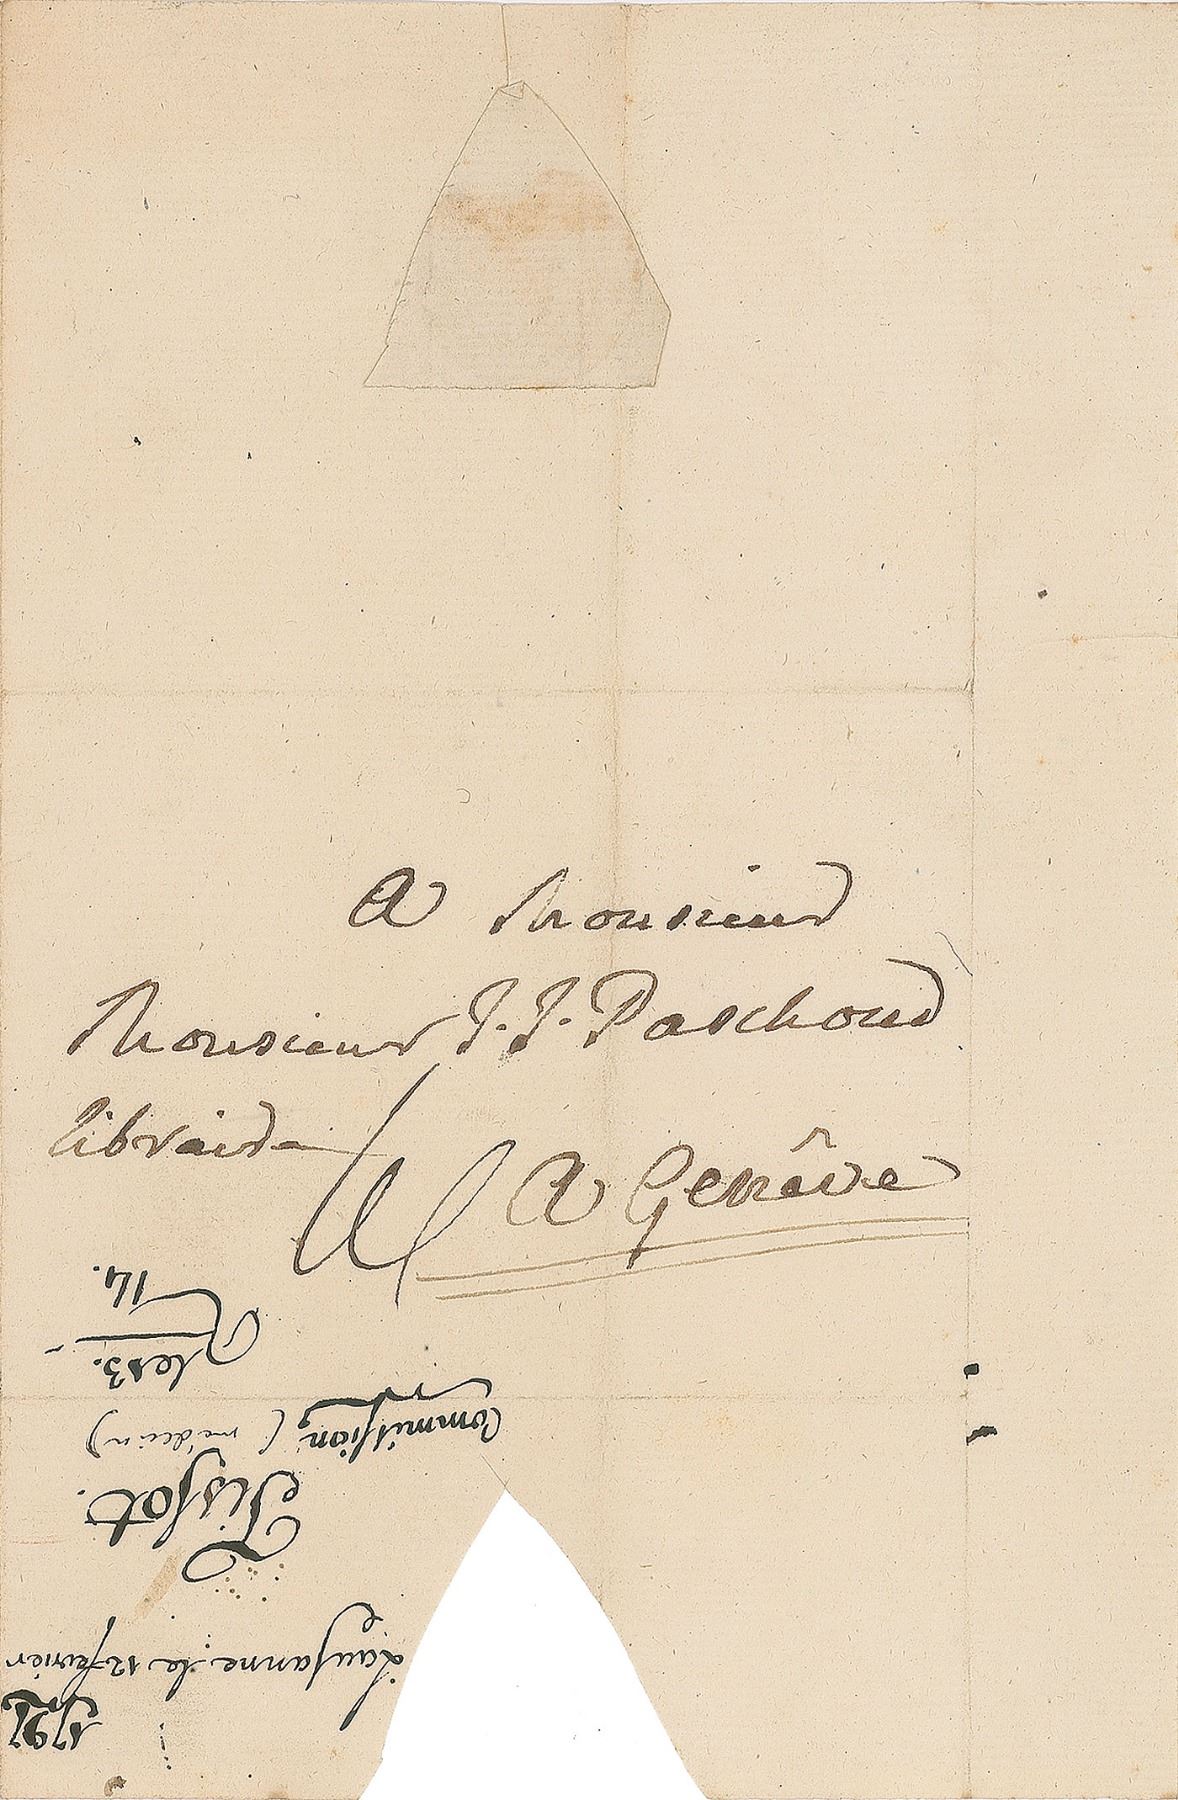 A Monsieur
Monsieur J. J. Paschoud
libraire
A Genêve
Lausanne, le 12 fevrier
Tissot.
Commission (médecin)
le 13.
R 14.